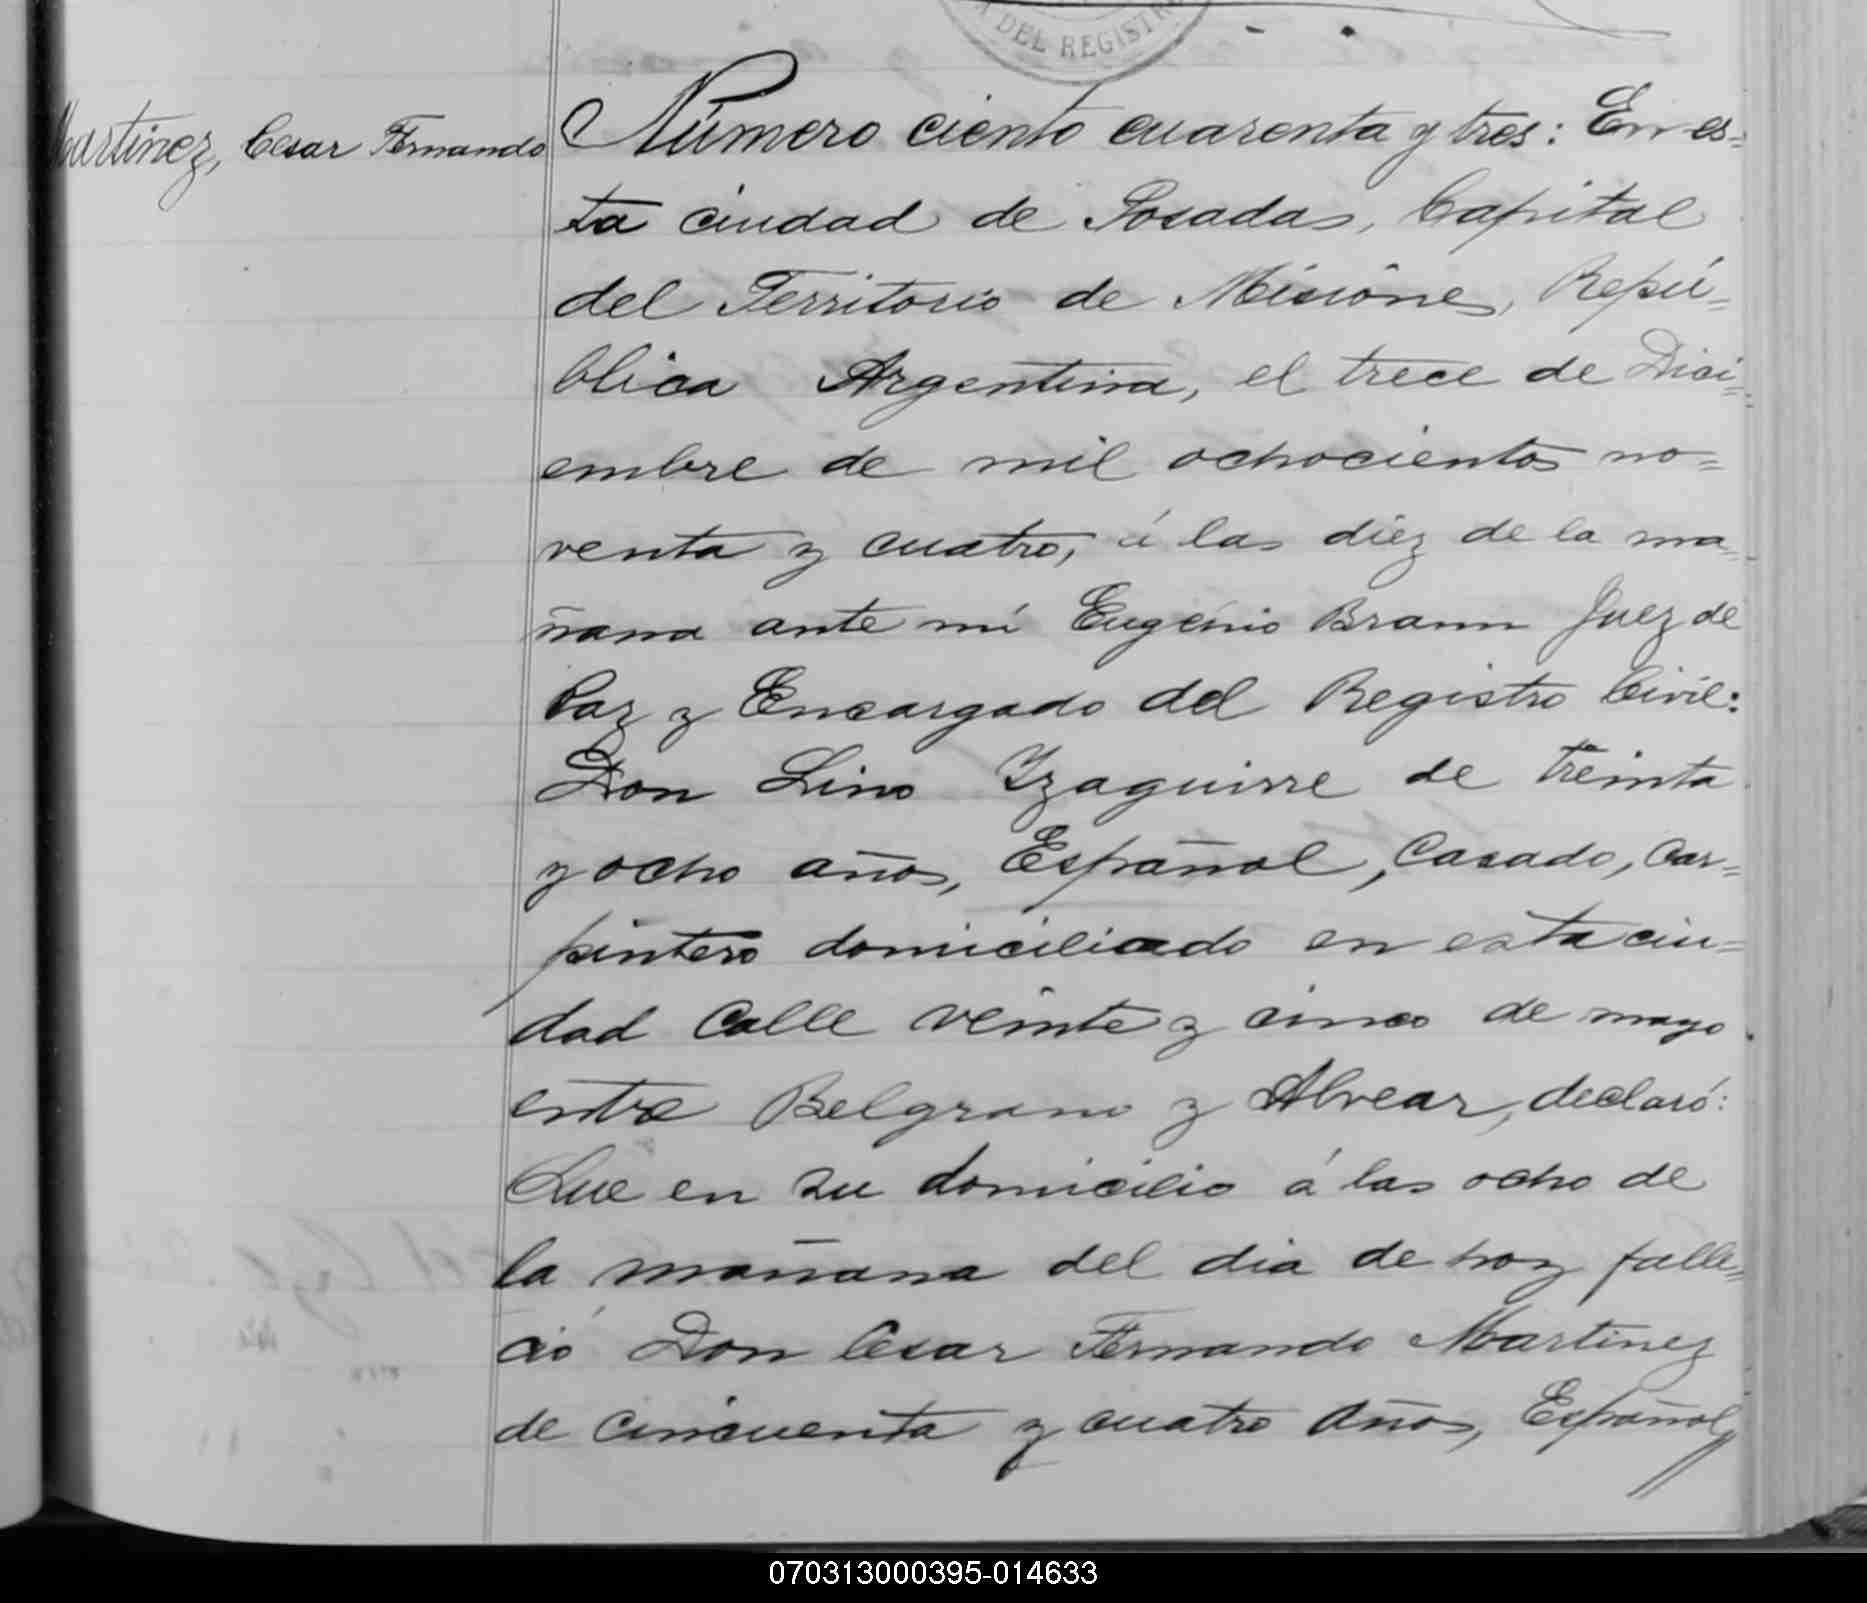 DEL REGISTR
Martinez, Cesar Fernando
Número ciento cuarenta y tres: En es=
ta ciudad de Posadas, Capital
del Territorio de Misiones, Repú=
blica Argentina, el trece de Dici=
embre de mil ochocientos no=
venta y cuatro, á las diez de la ma=
ñana ante mí Eugenio Brann Juez de
Paz y Encargado del Registro Civil:
Don Lino Yzaguirre de treinta
y ocho años, Español, Casado, Car=
pintero domiciliado en esta ciu=
dad Calle veinte y cinco de mayo
entre Belgrano y Alvear, declaró:
Que en su domicilio á las ocho de
la mañana del dia de hoy falle=
ció Don Cesar Fernando Martinez
de cincuenta y cuatro años, Español,
070313000395-014633